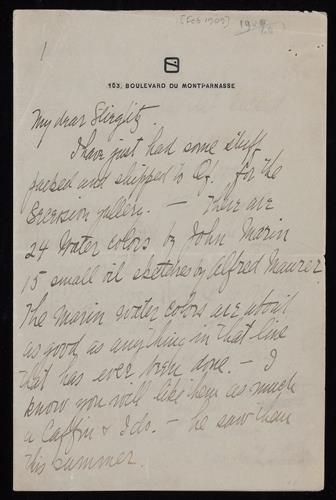 [Feb 1909] 1909
1
153, BOULEVARD DU MONTPARNASSE
My dear Stieglitz
I have just had some stuff
packed and shipped to
for the
Secession gallery. — There are
24 Water colors by John Marin
15 small oil sketches by Alfred Maurer
The Marin water colors are about
as good as anything in that line
that has ever been done. — I
know you will like them as much
a Caffin & I do. — he saw them
this summer.